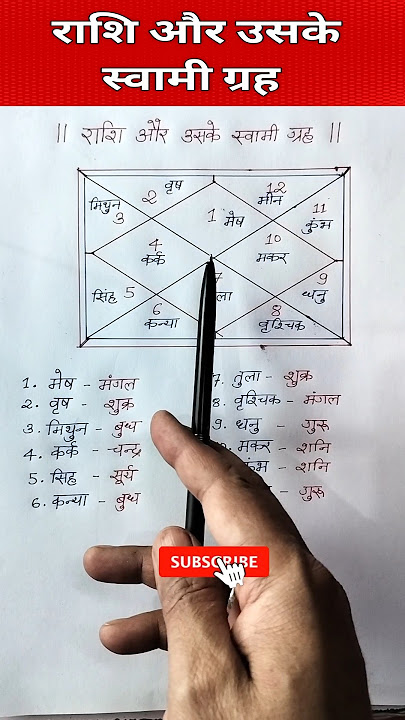 राशि और उसके
स्वामी ग्रह
|| राशि और उसके स्वामी ग्रह ||
वृष
2
मिथुन
3
12
मीन
1 मेष
11
कुंभ
4
कर्क
10
मकर
सिंह 5
7
9
धनु
6
कन्या
8
वृश्चिक
1. मेष - मंगल
2. वृष - शुक्र
3. मिथुन - बुध
4. कर्क - चन्द्र
5. सिंह - सूर्य
6. कन्या - बुध
7. तुला - शुक्र
8. वृश्चिक - मंगल
9. धनु - गुरू
मकर - शनि
- शनि
- गुरू
SUBSCRIBE